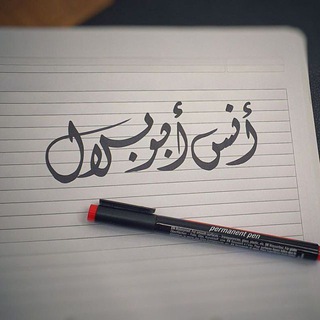 أنس أبو بلال
permanent pen